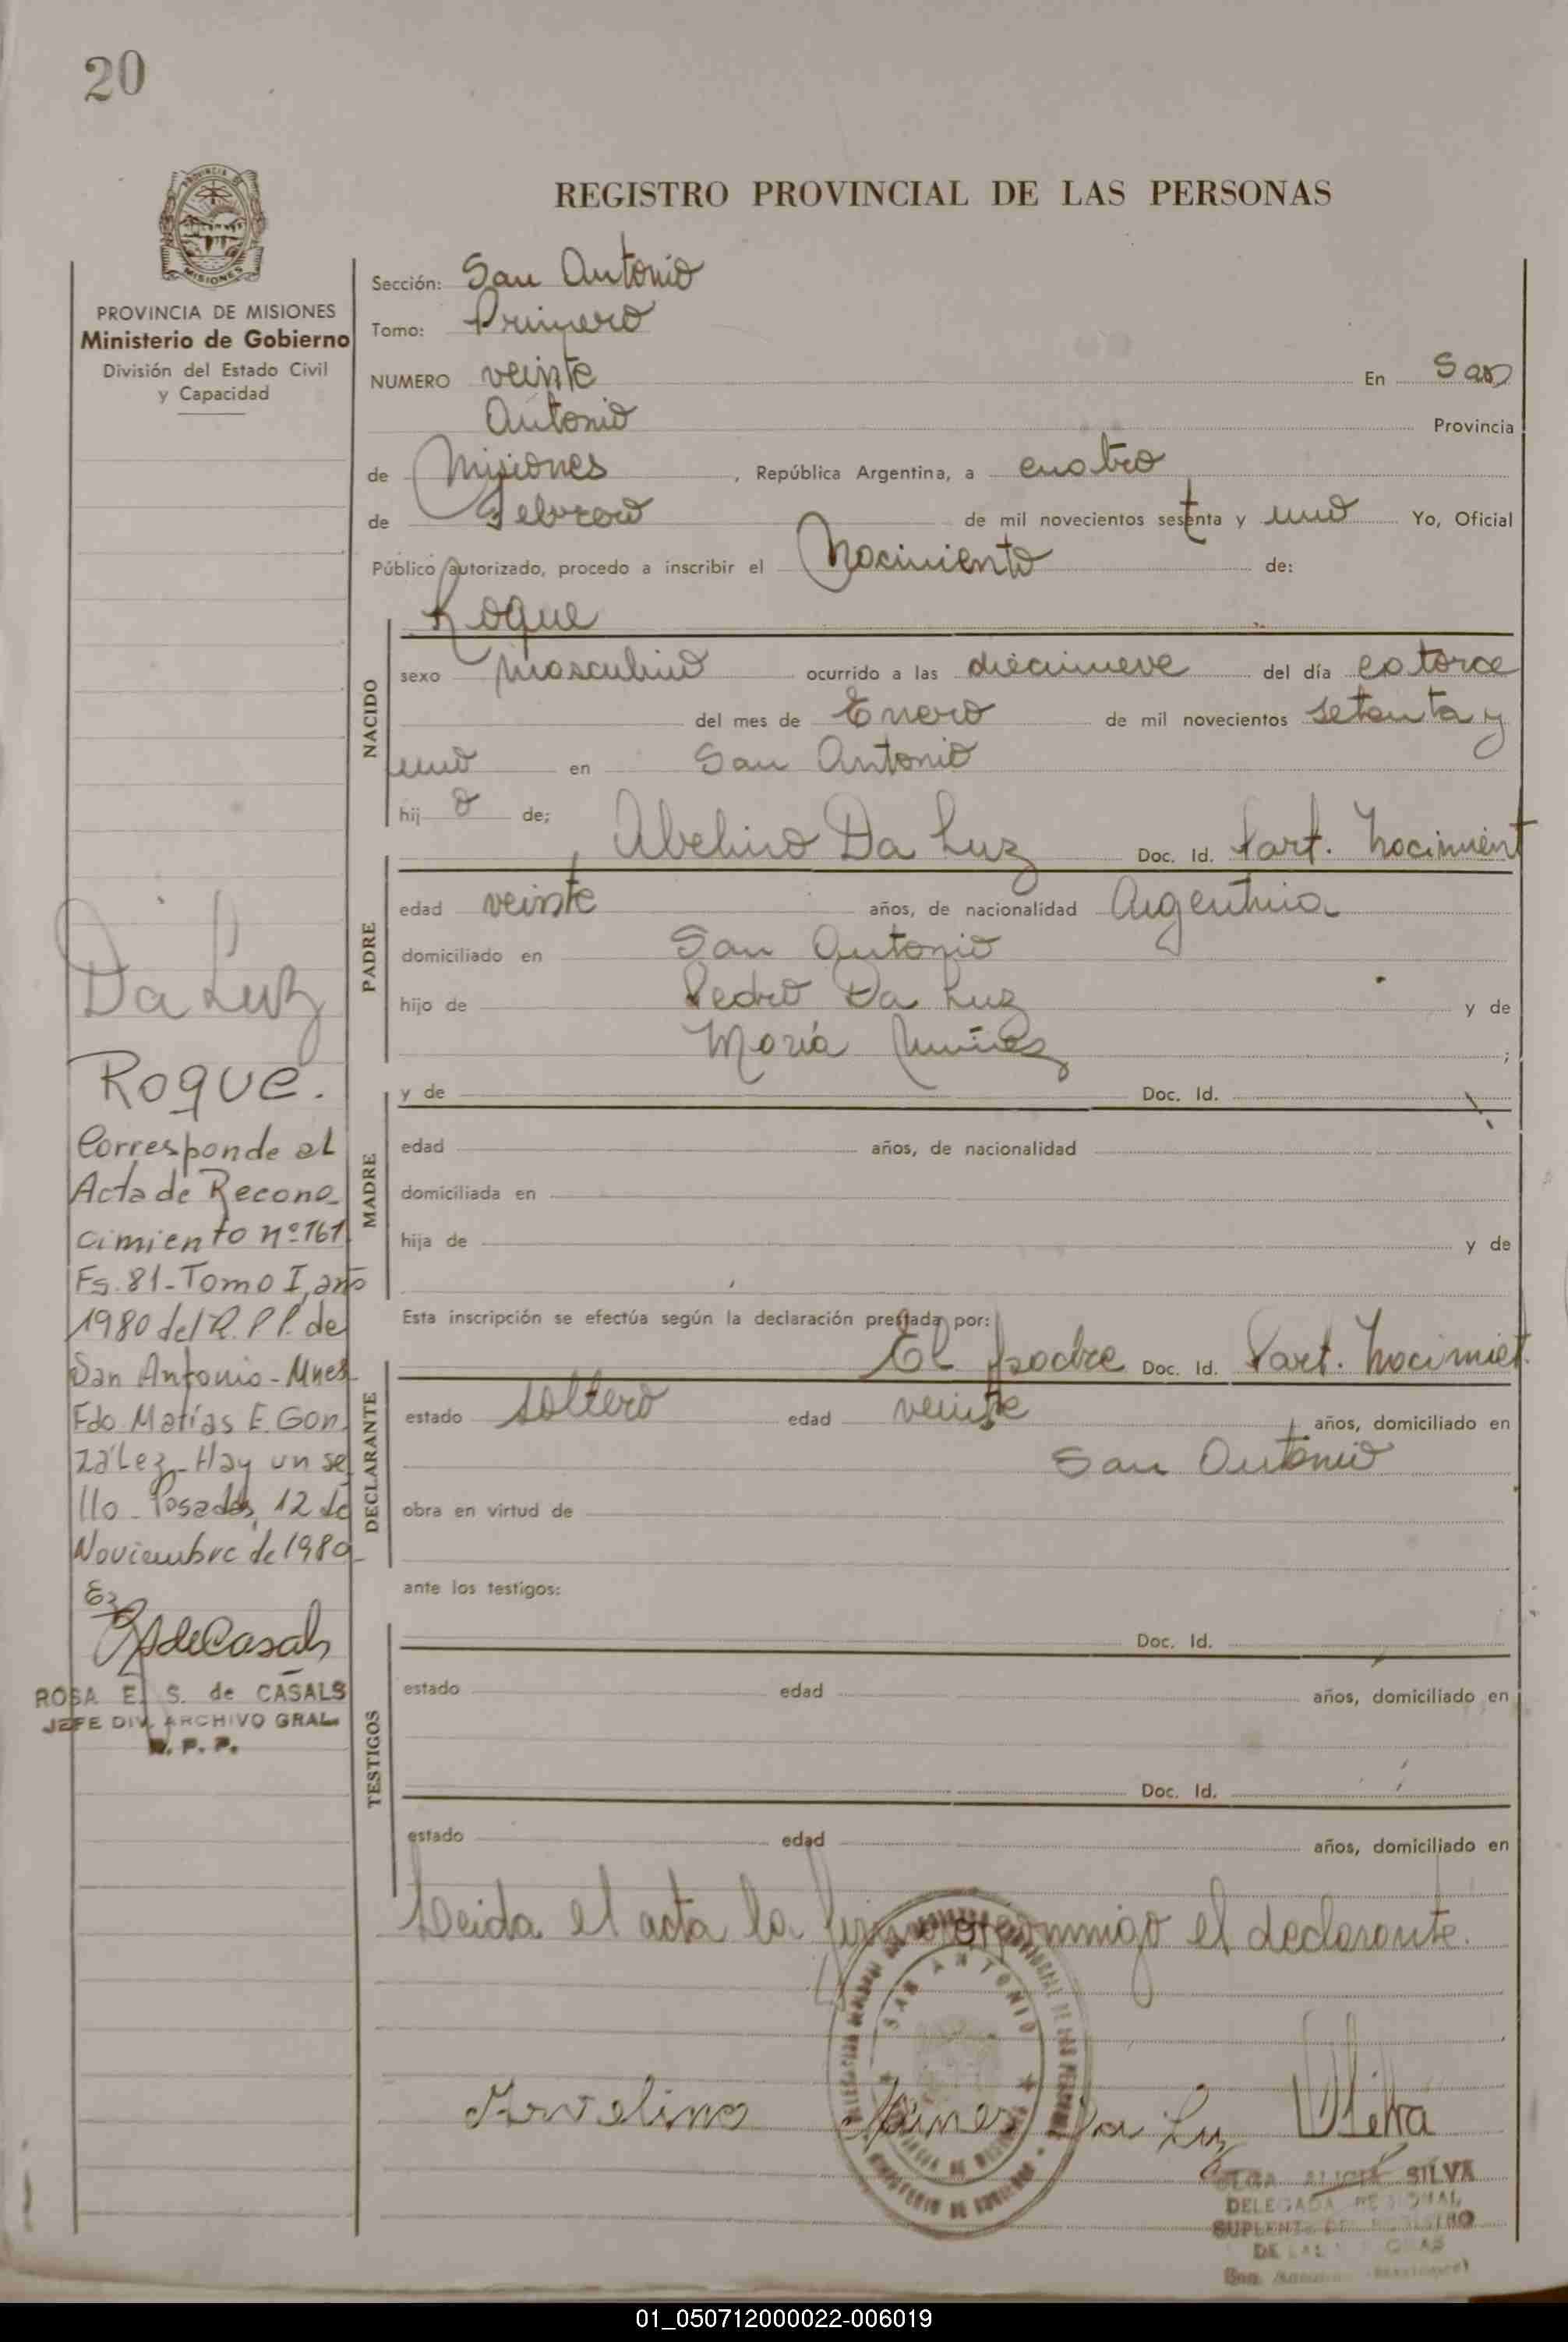 20
REGISTRO PROVINCIAL DE LAS PERSONAS
PROVINCIA DE
MISIONES
PROVINCIA DE MISIONES
Ministerio de Gobierno
División del Estado Civil
y Capacidad
Sección: San Antonio
Tomo: Primero
NUMERO veinte En San
Antonio Provincia
de Misiones, República Argentina, a cuatro
de Febrero de mil novecientos sesenta y uno Yo, Oficial
t
Público autorizado, procedo a inscribir el Nacimiento de:
Roque
NACIDO
sexo Masculino ocurrido a las diecinueve del día catorce
del mes de Enero de mil novecientos setenta y
uno en San Antonio
hij o de;
Abelino Da Luz Doc. Id. Part. Nacimient
PADRE
edad veinte años, de nacionalidad Argentina
domiciliado en San Antonio
hijo de Pedro Da Luz y de
María Nuñez ;
MADRE
y de Doc. Id.
edad años, de nacionalidad
domiciliada en
hija de y de
Esta inscripción se efectúa según la declaración prestada por:
El padre Doc. Id. Part. Nacimiet.
DECLARANTE
estado soltero edad veinte años, domiciliado en
San Antonio
obra en virtud de
ante los testigos:
TESTIGOS
Doc. Id.
estado edad años, domiciliado en
Doc. Id.
estado edad años, domiciliado en
Leida el acta la firma conmigo el declarante.
Da Luz
Roque.
Corresponde al
Acta de Recono-
cimiento nº 161
Fs. 81- Tomo I, año
1980 del R. P P. de
San Antonio - Mnes
Fdo Matías E. Gon
zález - Hay un se
llo - Posadas, 12 de
Noviembre de 1980
ROSA E. S. de CASALS
JEFE DIV. ARCHIVO GRAL.
R. P. P.
SAN ANTONIO
MINISTERIO DE GOBIERNO
Arvelino Nunes Da Luz
OLGA ALICIA SILVA
DELEGADA REGIONAL
SUPLENTE DEL REGISTRO
01_050712000022-006019